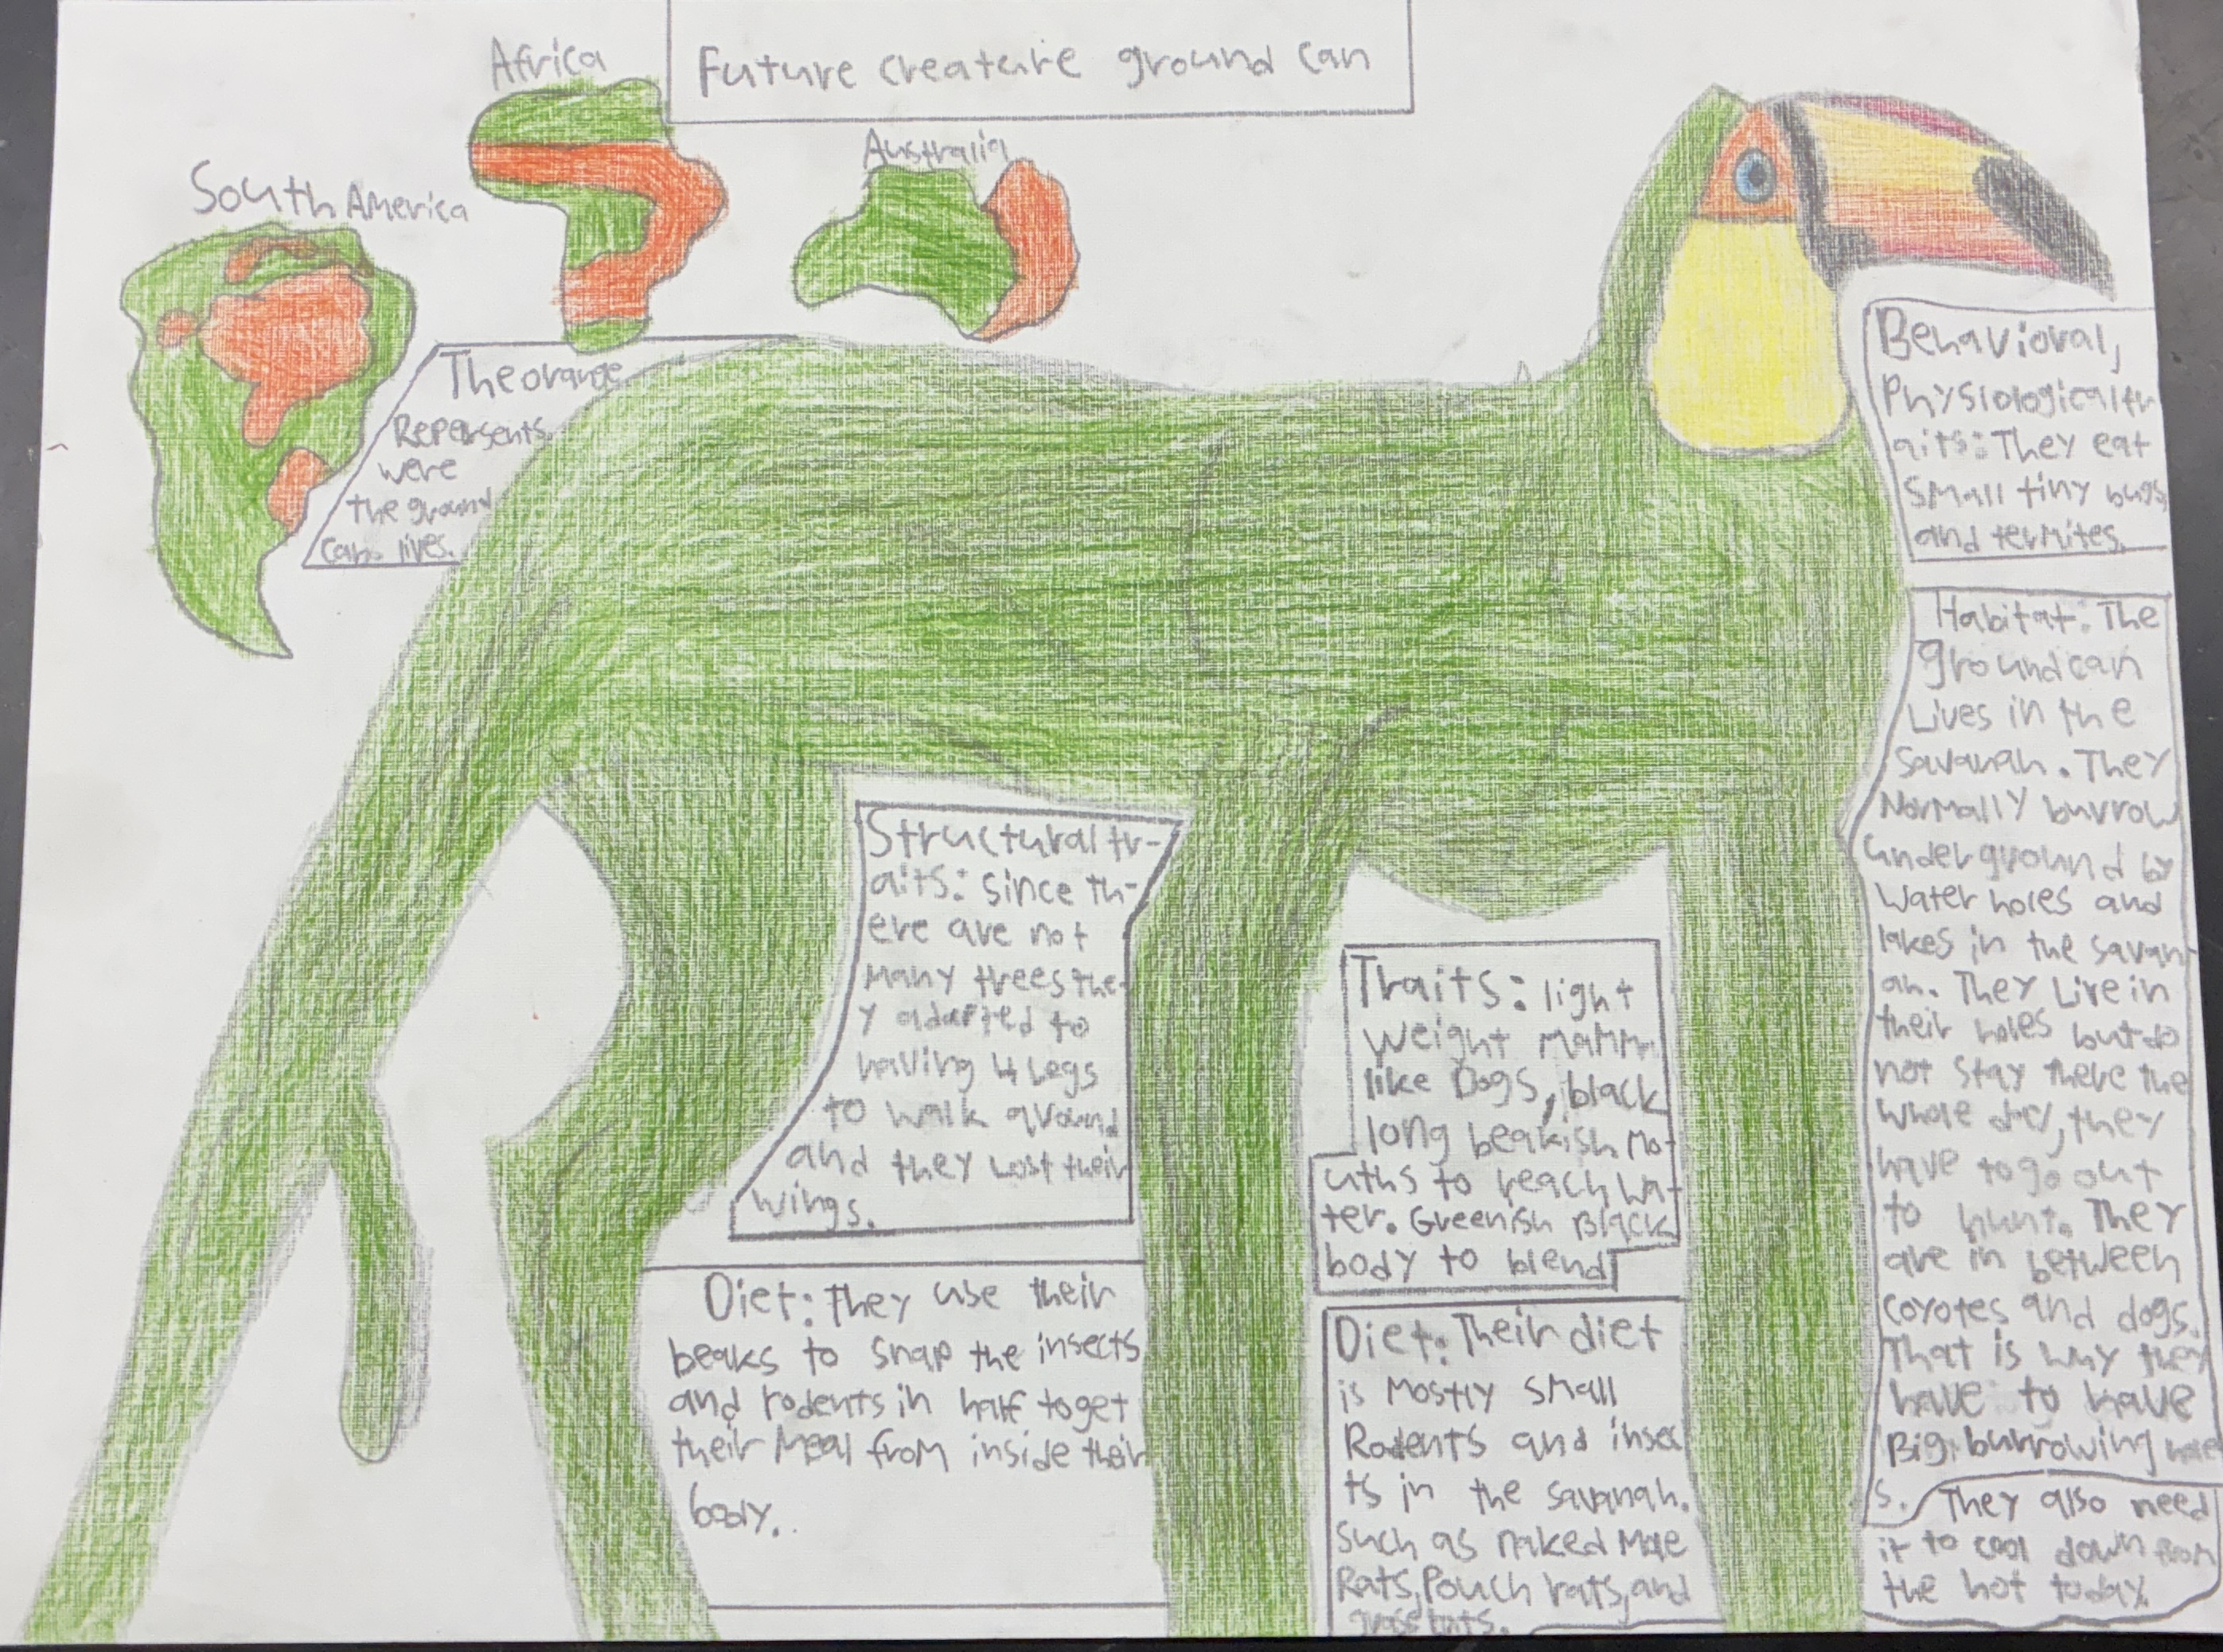 Future creature ground can
Africa
Australia
South America
The orange
Repersents
were
the ground
can lives.
Behavioral,
Physiological tr
aits: They eat
small tiny bugs
and termites.
Habitat: The
ground can
Lives in the
savanah. They
Normally burrow
underground by
Water holes and
lakes in the savan
ah. They Live in
their holes but do
not stay there the
whole day, they
have to go out
to hunt. They
are in between
coyotes and dogs.
That is why they
have to have
Big burrowing hole
s. They also need
it to cool down from
the hot today.
Structural tr-
aits: since th-
ere are not
many trees the
y adapted to
having 4 Legs
to walk around
and they Lost their
wings.
Traits: light
weight
like Dogs, black
long beakish mo-
uths to reach wa-
ter. Greenish Black
body to blend
Diet: They use their
beaks to snap the insects
and rodents in half to get
their meal from inside their
body.
Diet: Their diet
is mostly small
Rodents and insec
ts in the savanah.
Such as naked Mole
Rats, Pouch rats, and